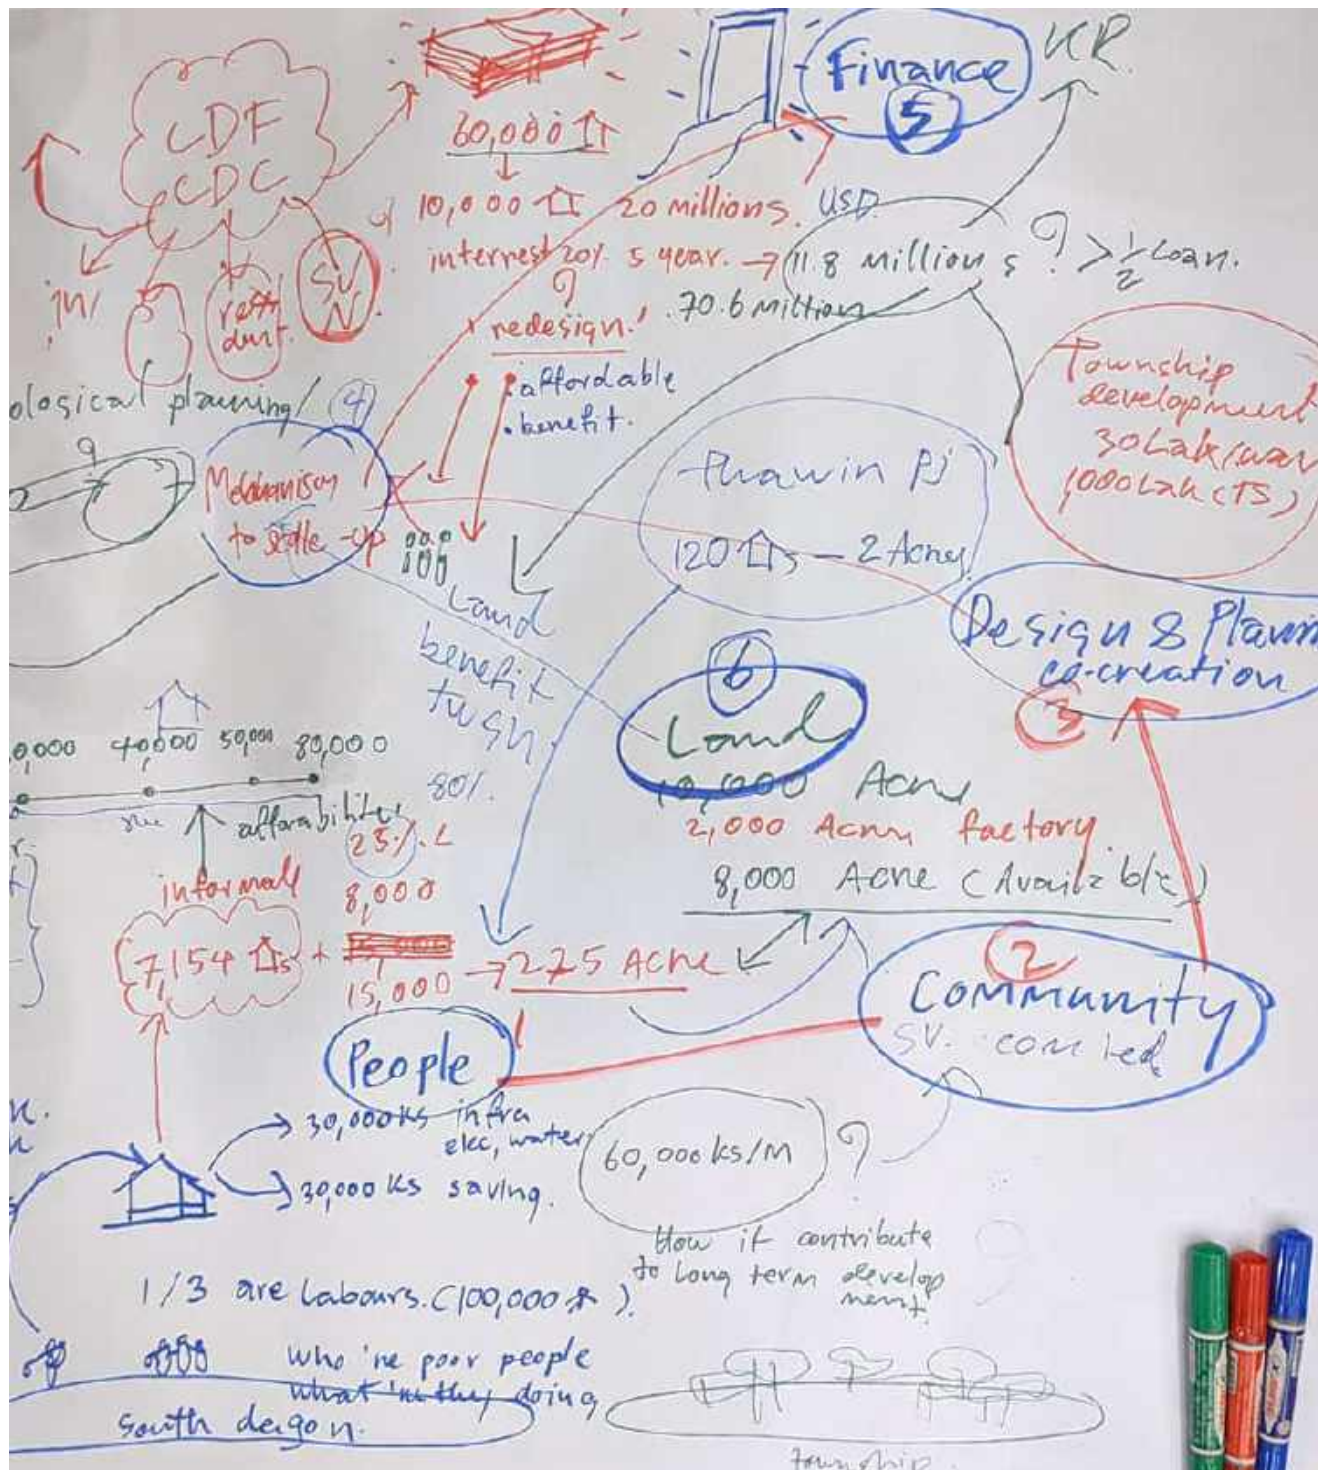 CDF
CDC
60,000
10,000
20 millions. USD.
interrest 20% 5 year. → 11.8 Million $ ? > 1/2 Loan.
70.6 Million
Finance
5
KR.
SV/
N
"redesign"
. affordable
. benefit.
Township
development
30 Lak/war
1,000 Lak (TS)
ological planning/ 4
Mechanism
to scale-up
Thawin Pj
120 s — 2 Acres
Design & Plann
co-creation
3
Land
benefit
80%.
6
Land
10,000 Acre
2,000 Acre factory.
8,000 Acre (Available)
0,000 40,000 50,000 80,000
25%
8,000
informal
7,154 s +
15,000
→ 275 Acre
2
Community
SV.
People
30,000 ks infra
elec, water
30,000 ks saving.
60,000 ks/M ?
How it contribute
to long term develop
ment.
1/3 are Labours. (100,000 ).
who're poor people
what 're they doing
south dagon.
township.